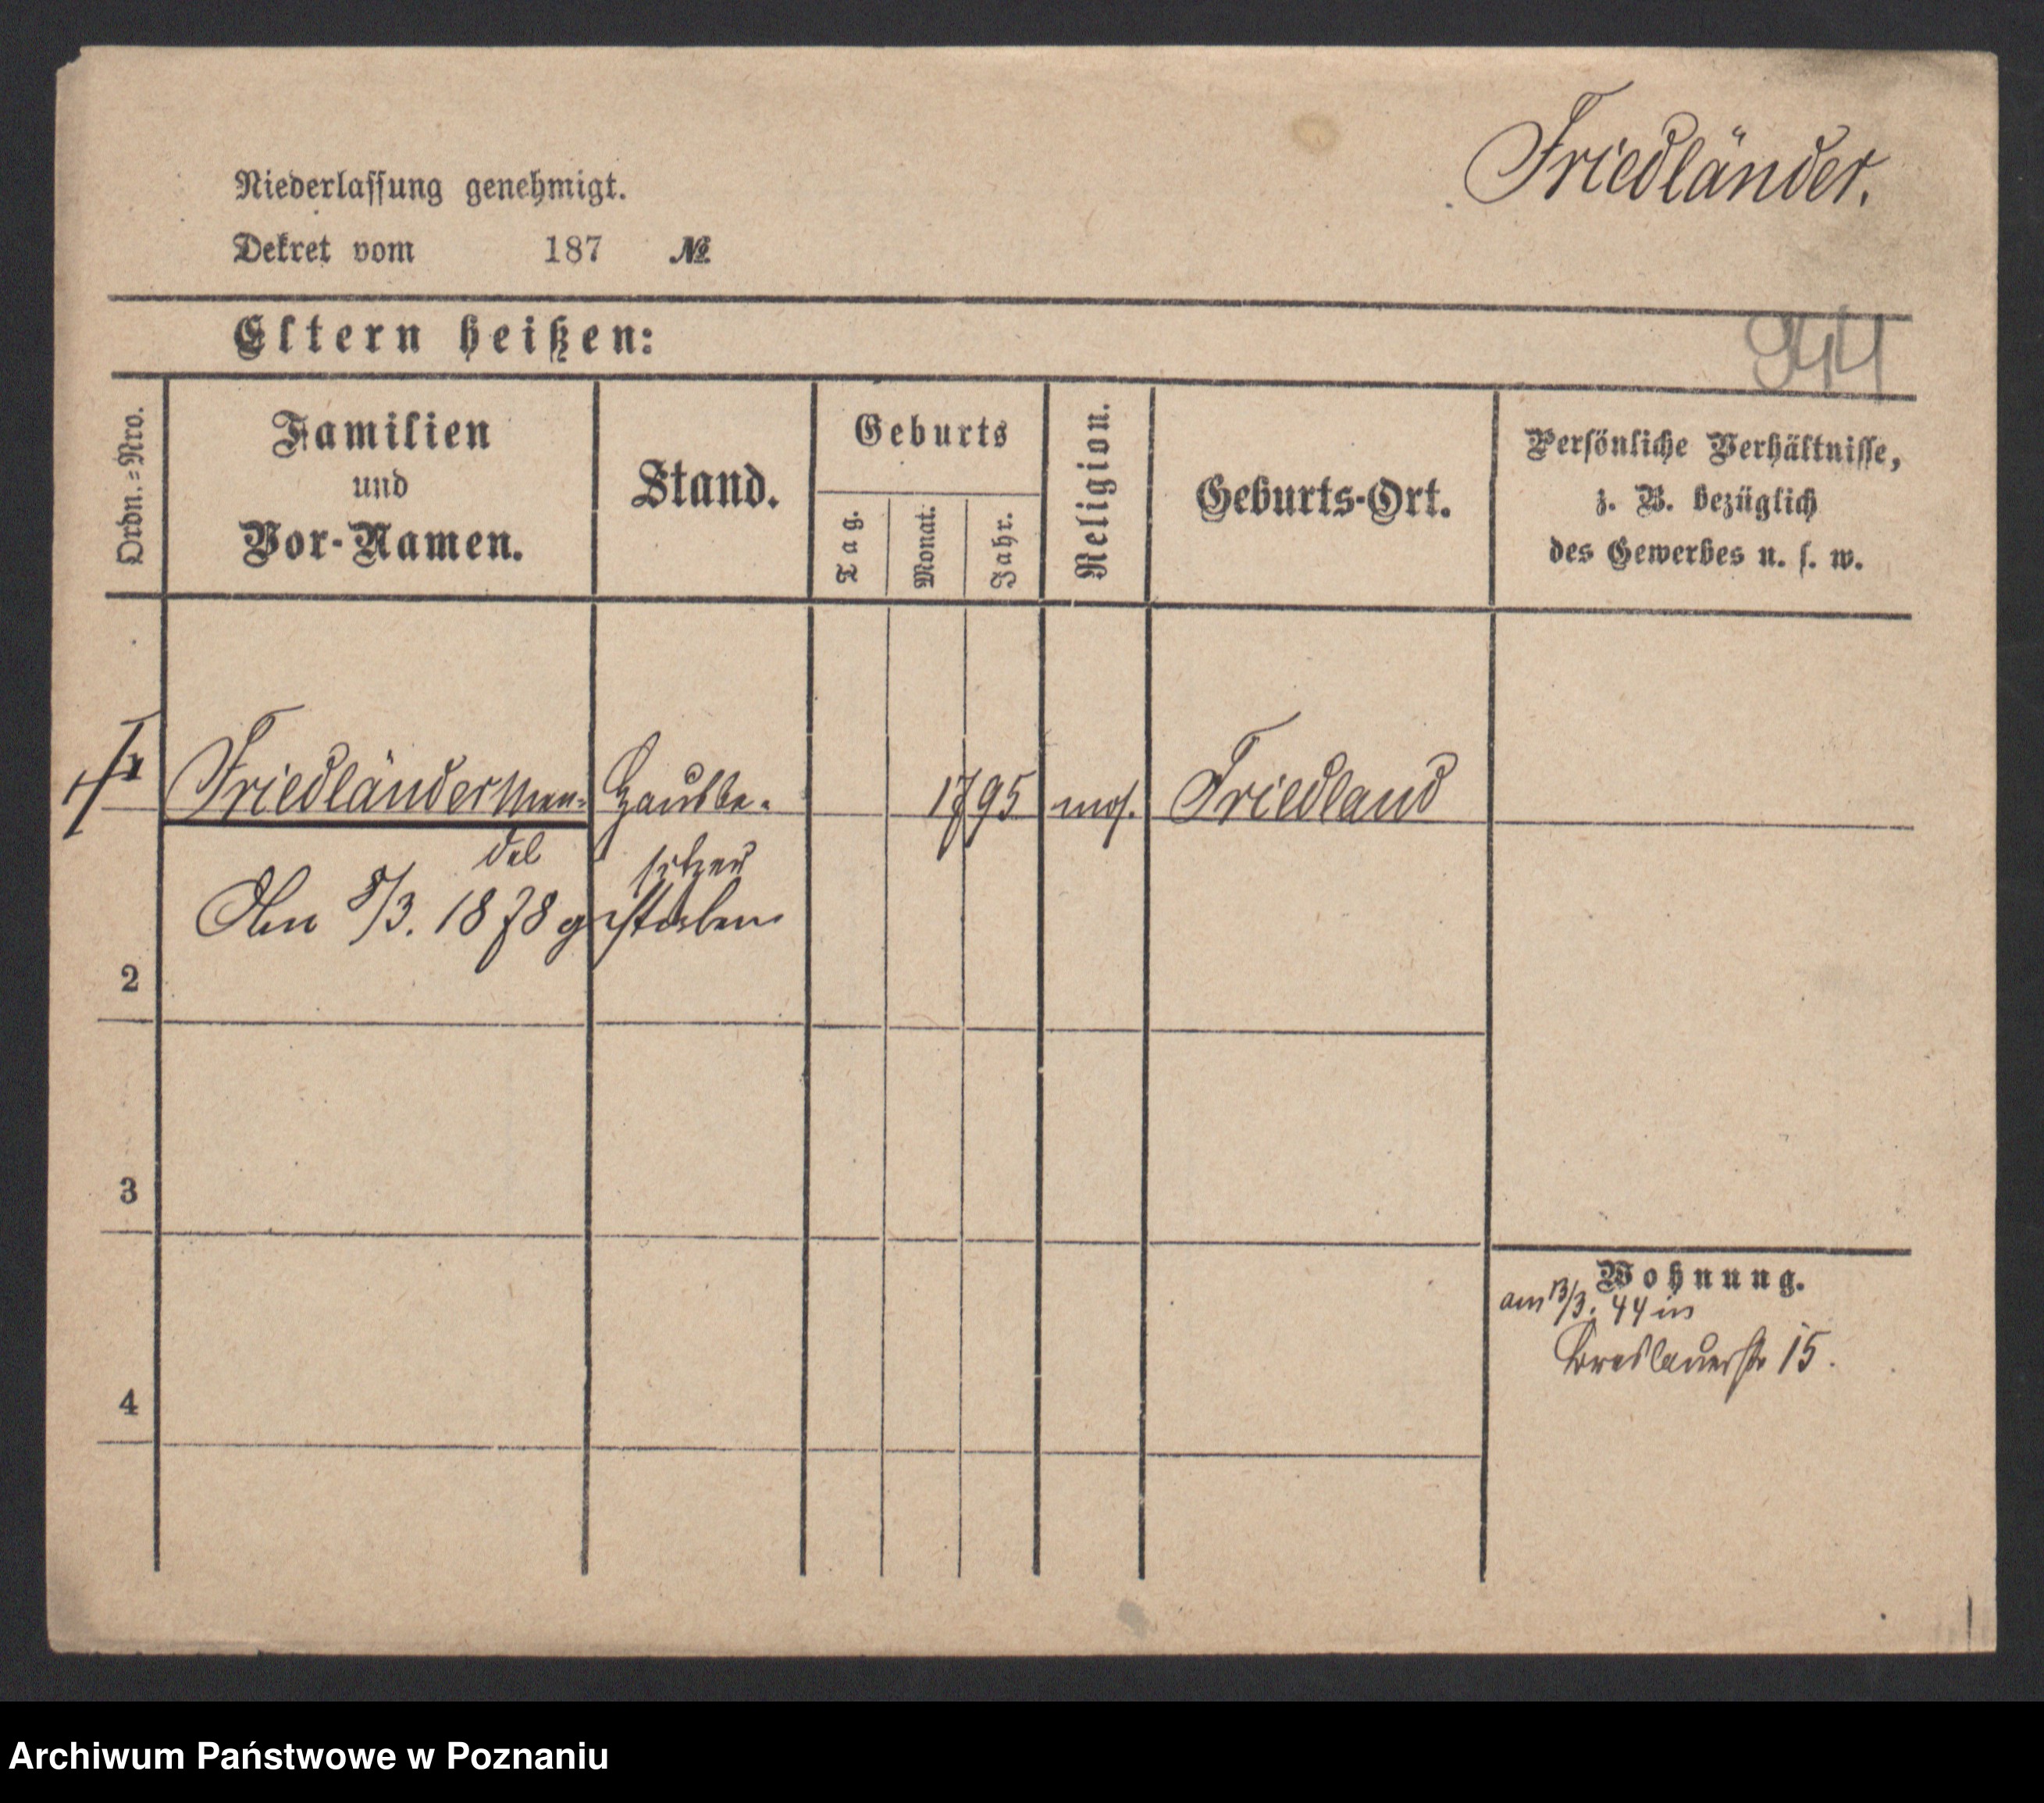 Friedländer.
Niederlassung genehmigt.
Dekret vom 187 №
Eltern heißen:
944
Ordn.=Nro.
Familien
und
Vor-Namen.
Stand.
Geburts
Tag.
Monat.
Jahr.
Religion.
Geburts-Ort.
Persönliche Verhältnisse,
z. B. bezüglich
des Gewerbes u. s. w.
1 Friedländer Men= Hausbe- 1795 mos. Friedland
del sitzer
Am 8/3. 1878 gestorben
2
3
Wohnung.
am 13/3. 44 in
Breslauerstr 15.
4
Archiwum Państwowe w Poznaniu